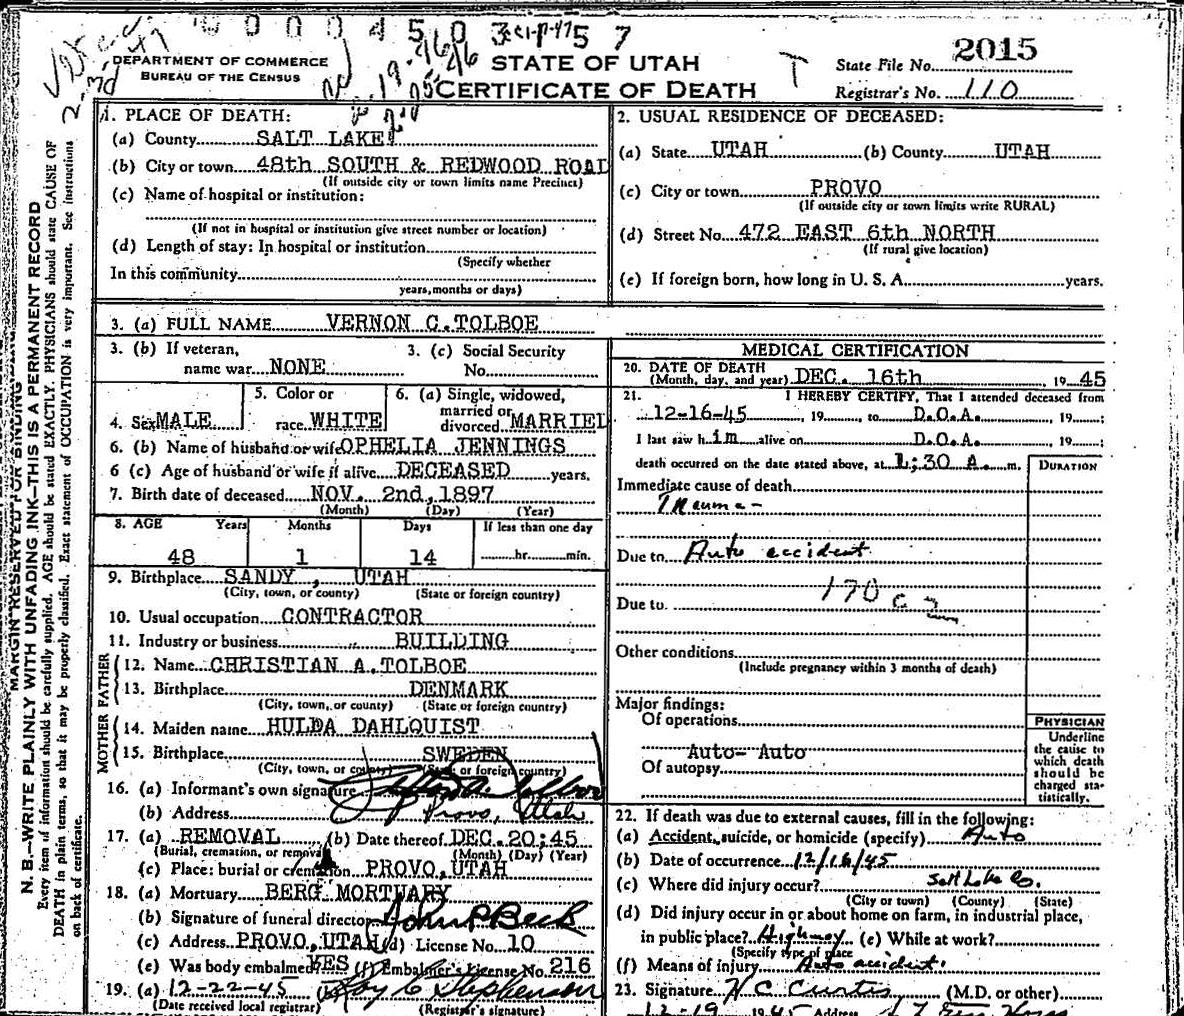 0 0 0 0 4 5 0 3 5 7
DEPARTMENT OF COMMERCE
BUREAU OF THE CENSUS
STATE OF UTAH
CERTIFICATE OF DEATH
State File No. 2015
Registrar's No. 110
MARGIN RESERVED FOR BINDING
N. B.—WRITE PLAINLY WITH UNFADING INK—THIS IS A PERMANENT RECORD
Every item of information should be carefully supplied. AGE should be stated EXACTLY. PHYSICIANS should state CAUSE OF
DEATH in plain terms, so that it may be properly classified. Exact statement of OCCUPATION is very important. See instructions
on back of certificate.
1. PLACE OF DEATH:
(a) County SALT LAKE
(b) City or town 48th SOUTH & REDWOOD ROAD
(If outside city or town limits name Precinct)
(c) Name of hospital or institution:
(If not in hospital or institution give street number or location)
(d) Length of stay: In hospital or institution
(Specify whether
In this community
years, months or days)
2. USUAL RESIDENCE OF DECEASED:
(a) State UTAH (b) County UTAH
(c) City or town PROVO
(If outside city or town limits write RURAL)
(d) Street No. 472 EAST 6th NORTH
(If rural give location)
(e) If foreign born, how long in U. S. A. years.
3. (a) FULL NAME VERNON C. TOLBOE
3. (b) If veteran, name war NONE
3. (c) Social Security No.
4. Sex MALE
5. Color or race WHITE
6. (a) Single, widowed, married or divorced MARRIED
6. (b) Name of husband or wife OPHELIA JENNINGS
6 (c) Age of husband or wife if alive DECEASED years.
7. Birth date of deceased NOV. 2nd, 1897
(Month) (Day) (Year)
8. AGE Years Months Days If less than one day
48 1 14 hr. min.
9. Birthplace SANDY, UTAH
(City, town, or county) (State or foreign country)
10. Usual occupation CONTRACTOR
11. Industry or business BUILDING
FATHER
12. Name CHRISTIAN A. TOLBOE
13. Birthplace DENMARK
(City, town, or county) (State or foreign country)
MOTHER
14. Maiden name HULDA DAHLQUIST
15. Birthplace SWEDEN
(City, town, or county) (State or foreign country)
16. (a) Informant's own signature
(b) Address Provo, Utah
17. (a) REMOVAL (b) Date thereof DEC. 20:45
(Burial, cremation, or removal) (Month) (Day) (Year)
(c) Place: burial or cremation PROVO, UTAH
18. (a) Mortuary BERG MORTUARY
(b) Signature of funeral director
(c) Address PROVO, UTAH (d) License No. 10
(e) Was body embalmed YES (f) Embalmer's License No. 216
19. (a) 12-22-45 (b) Roy C Stephenson
(Date received local registrar) (Registrar's signature)
MEDICAL CERTIFICATION
20. DATE OF DEATH
(Month, day, and year) DEC. 16th, 19 45
21. I HEREBY CERTIFY, That I attended deceased from
12-16-45, 19 , to D.O.A., 19 ;
I last saw h im alive on D.O.A., 19 ;
death occurred on the date stated above, at 1:30 A. m.
DURATION
Immediate cause of death
Trauma -
Due to Auto accident
170 c 2
Due to
Other conditions
(Include pregnancy within 3 months of death)
Major findings:
Of operations
Auto- Auto
Of autopsy
PHYSICIAN
Underline
the cause to
which death
should be
charged sta-
tistically.
22. If death was due to external causes, fill in the following:
(a) Accident, suicide, or homicide (specify) Auto
(b) Date of occurrence 12/16/45
(c) Where did injury occur? Salt Lake Co.
(City or town) (County) (State)
(d) Did injury occur in or about home on farm, in industrial place,
in public place? Highway (e) While at work?
(Specify type of place
(f) Means of injury Auto accident.
23. Signature H C Curtis, (M.D. or other)
12-19 1945 Address